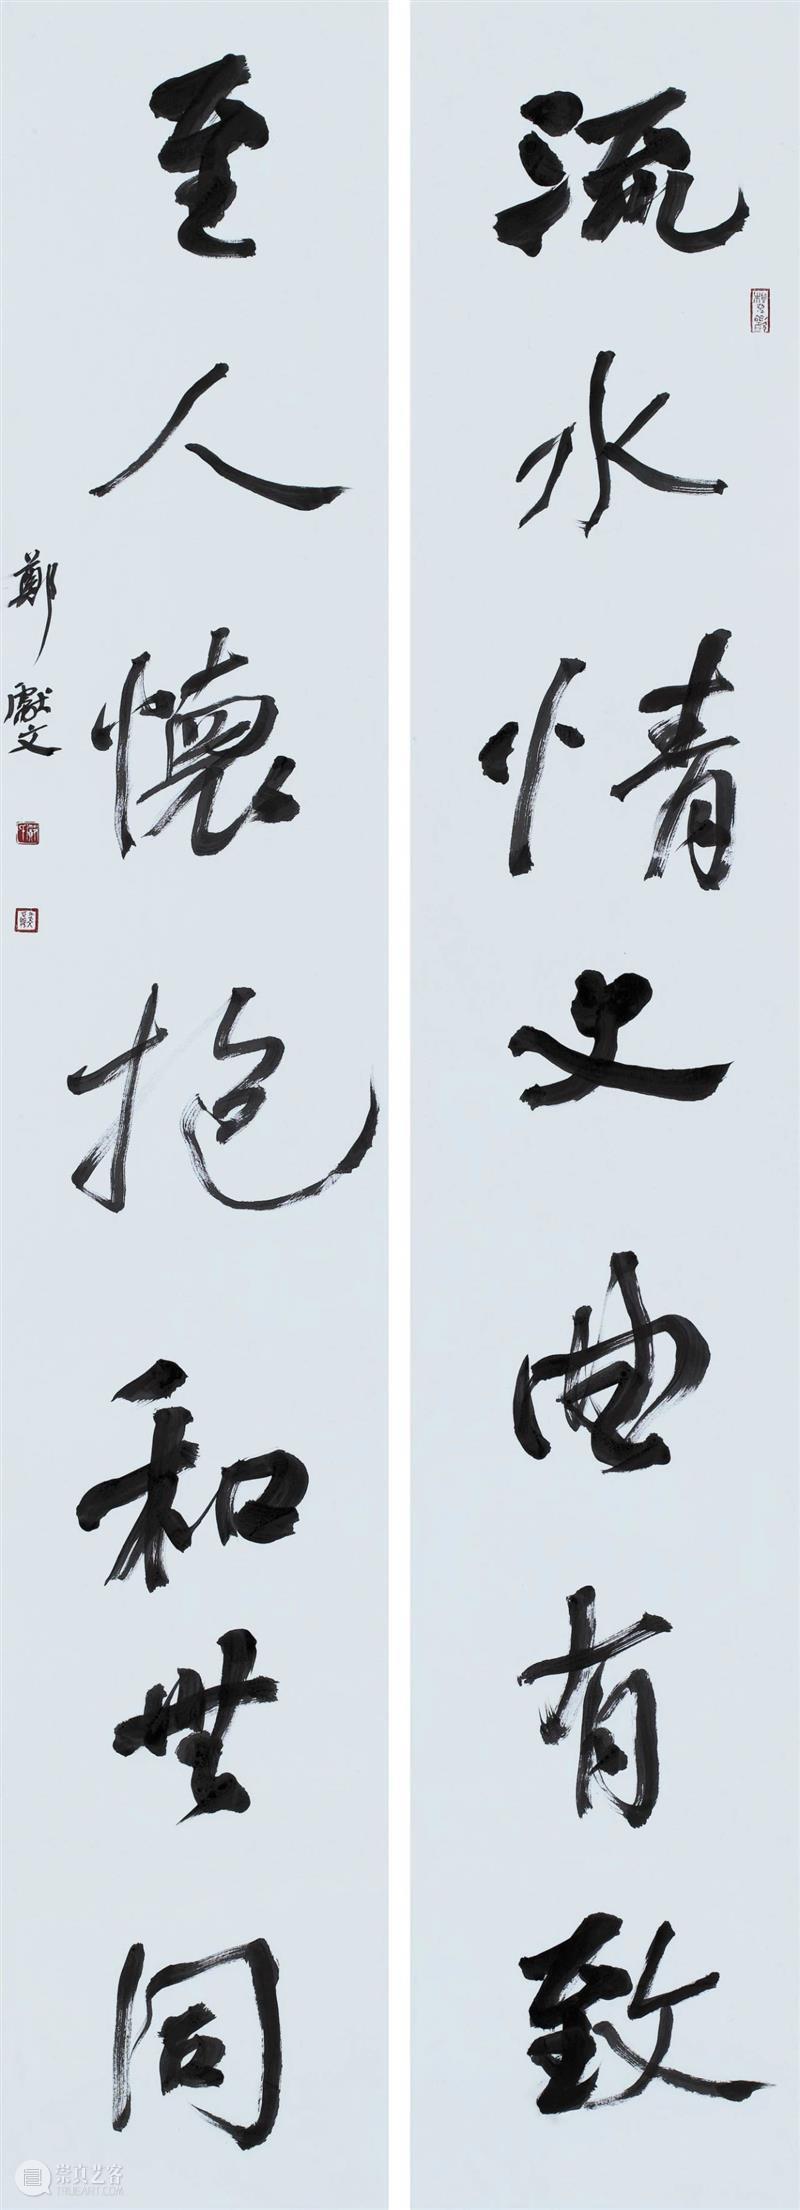 流水情文曲有致
至人懷抱和無同
鄭獻文
崇真艺客
TRUEART.COM